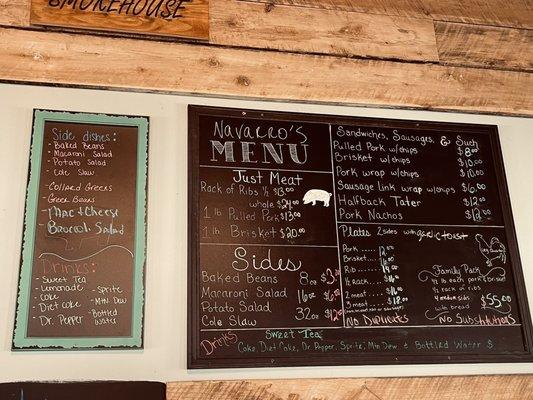 SMOKEHOUSE
Side dishes:
- Baked Beans
- Macaroni Salad
- Potato Salad
- Cole Slaw
- Collard Greens
- Green Beans
- Mac & Cheese
- Broccoli Salad
Drinks:
- Sweet Tea
- Lemonade - Sprite
- Coke - Mtn Dew
- Diet Coke - Bottled
- Dr. Pepper Water
Navarro's
MENU
Just Meat
Rack of Ribs ½ $13.00
whole $24.00
1 lb Pulled Pork $13.00
1 lb Brisket $20.00
Sides
Baked Beans 8oz $3.00
Macaroni Salad 16oz $6.00
Potato Salad
Cole Slaw 32oz $12.00
Sandwiches, Sausages, & Such
Pulled Pork w/chips $8.00
Brisket w/chips $10.00
Pork wrap w/chips $10.00
Sausage link wrap w/chips $6.00
Halfback Tater $12.00
Pork Nachos $12.00
Plates 2 sides with garlic toast
Pork
Brisket
Rib
½ Rack
2 meat
3 meat
Family Pack
½ rack of ribs
4 medium sides
with bread
$55.00
No Duplicates No Substitutions
Drinks
Sweet Tea
Coke, Diet Coke, Dr. Pepper, Sprite, Mtn Dew & Bottled Water $